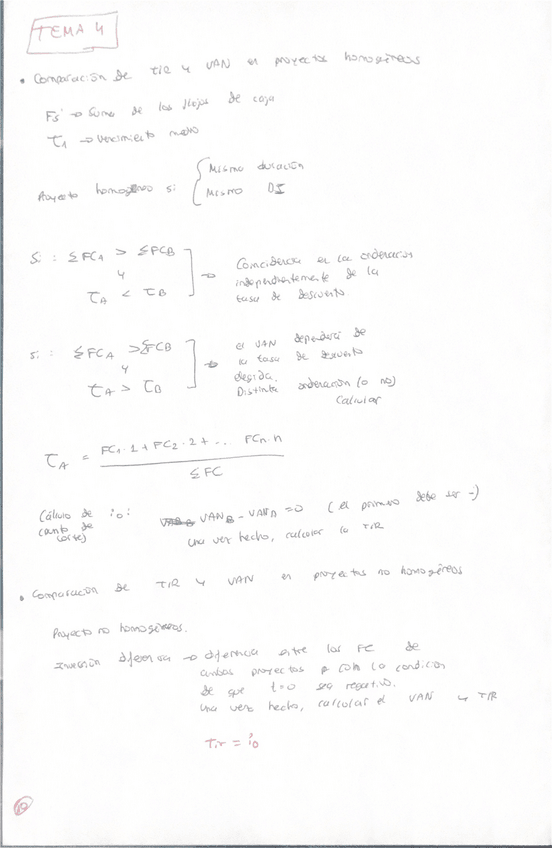 TEMA 4
• Comparación de TIR y VAN en proyectos homogéneos
Fs → Suma de los flujos de caja
τ1 → Vencimiento medio
Proyecto homogéneo si { Misma duración
Mismo DI
Si: ΣFCA > ΣFCB
y
τA < τB
→ Coincidencia en la ordenación
independientemente de la
tasa de descuento.
si: ΣFCA > ΣFCB
y
τA > τB
→ el VAN dependerá de
la tasa de descuento
elegida.
Distinta ordenación (o no)
Calcular
τA = FC1·1 + FC2·2 + ... FCn·n
ΣFC
Cálculo de i0: VANB - VANA = 0 (el primero debe ser -)
(punto de
corte)
Una vez hecho, calcular la TIR
• Comparación de TIR y VAN en proyectos no homogéneos
Proyecto no homogéneos.
Inversión diferencia → diferencia entre los FC de
ambos proyectos con la condición
de que t=0 sea negativo.
Una vez hecho, calcular el VAN y TIR
Tir = i0